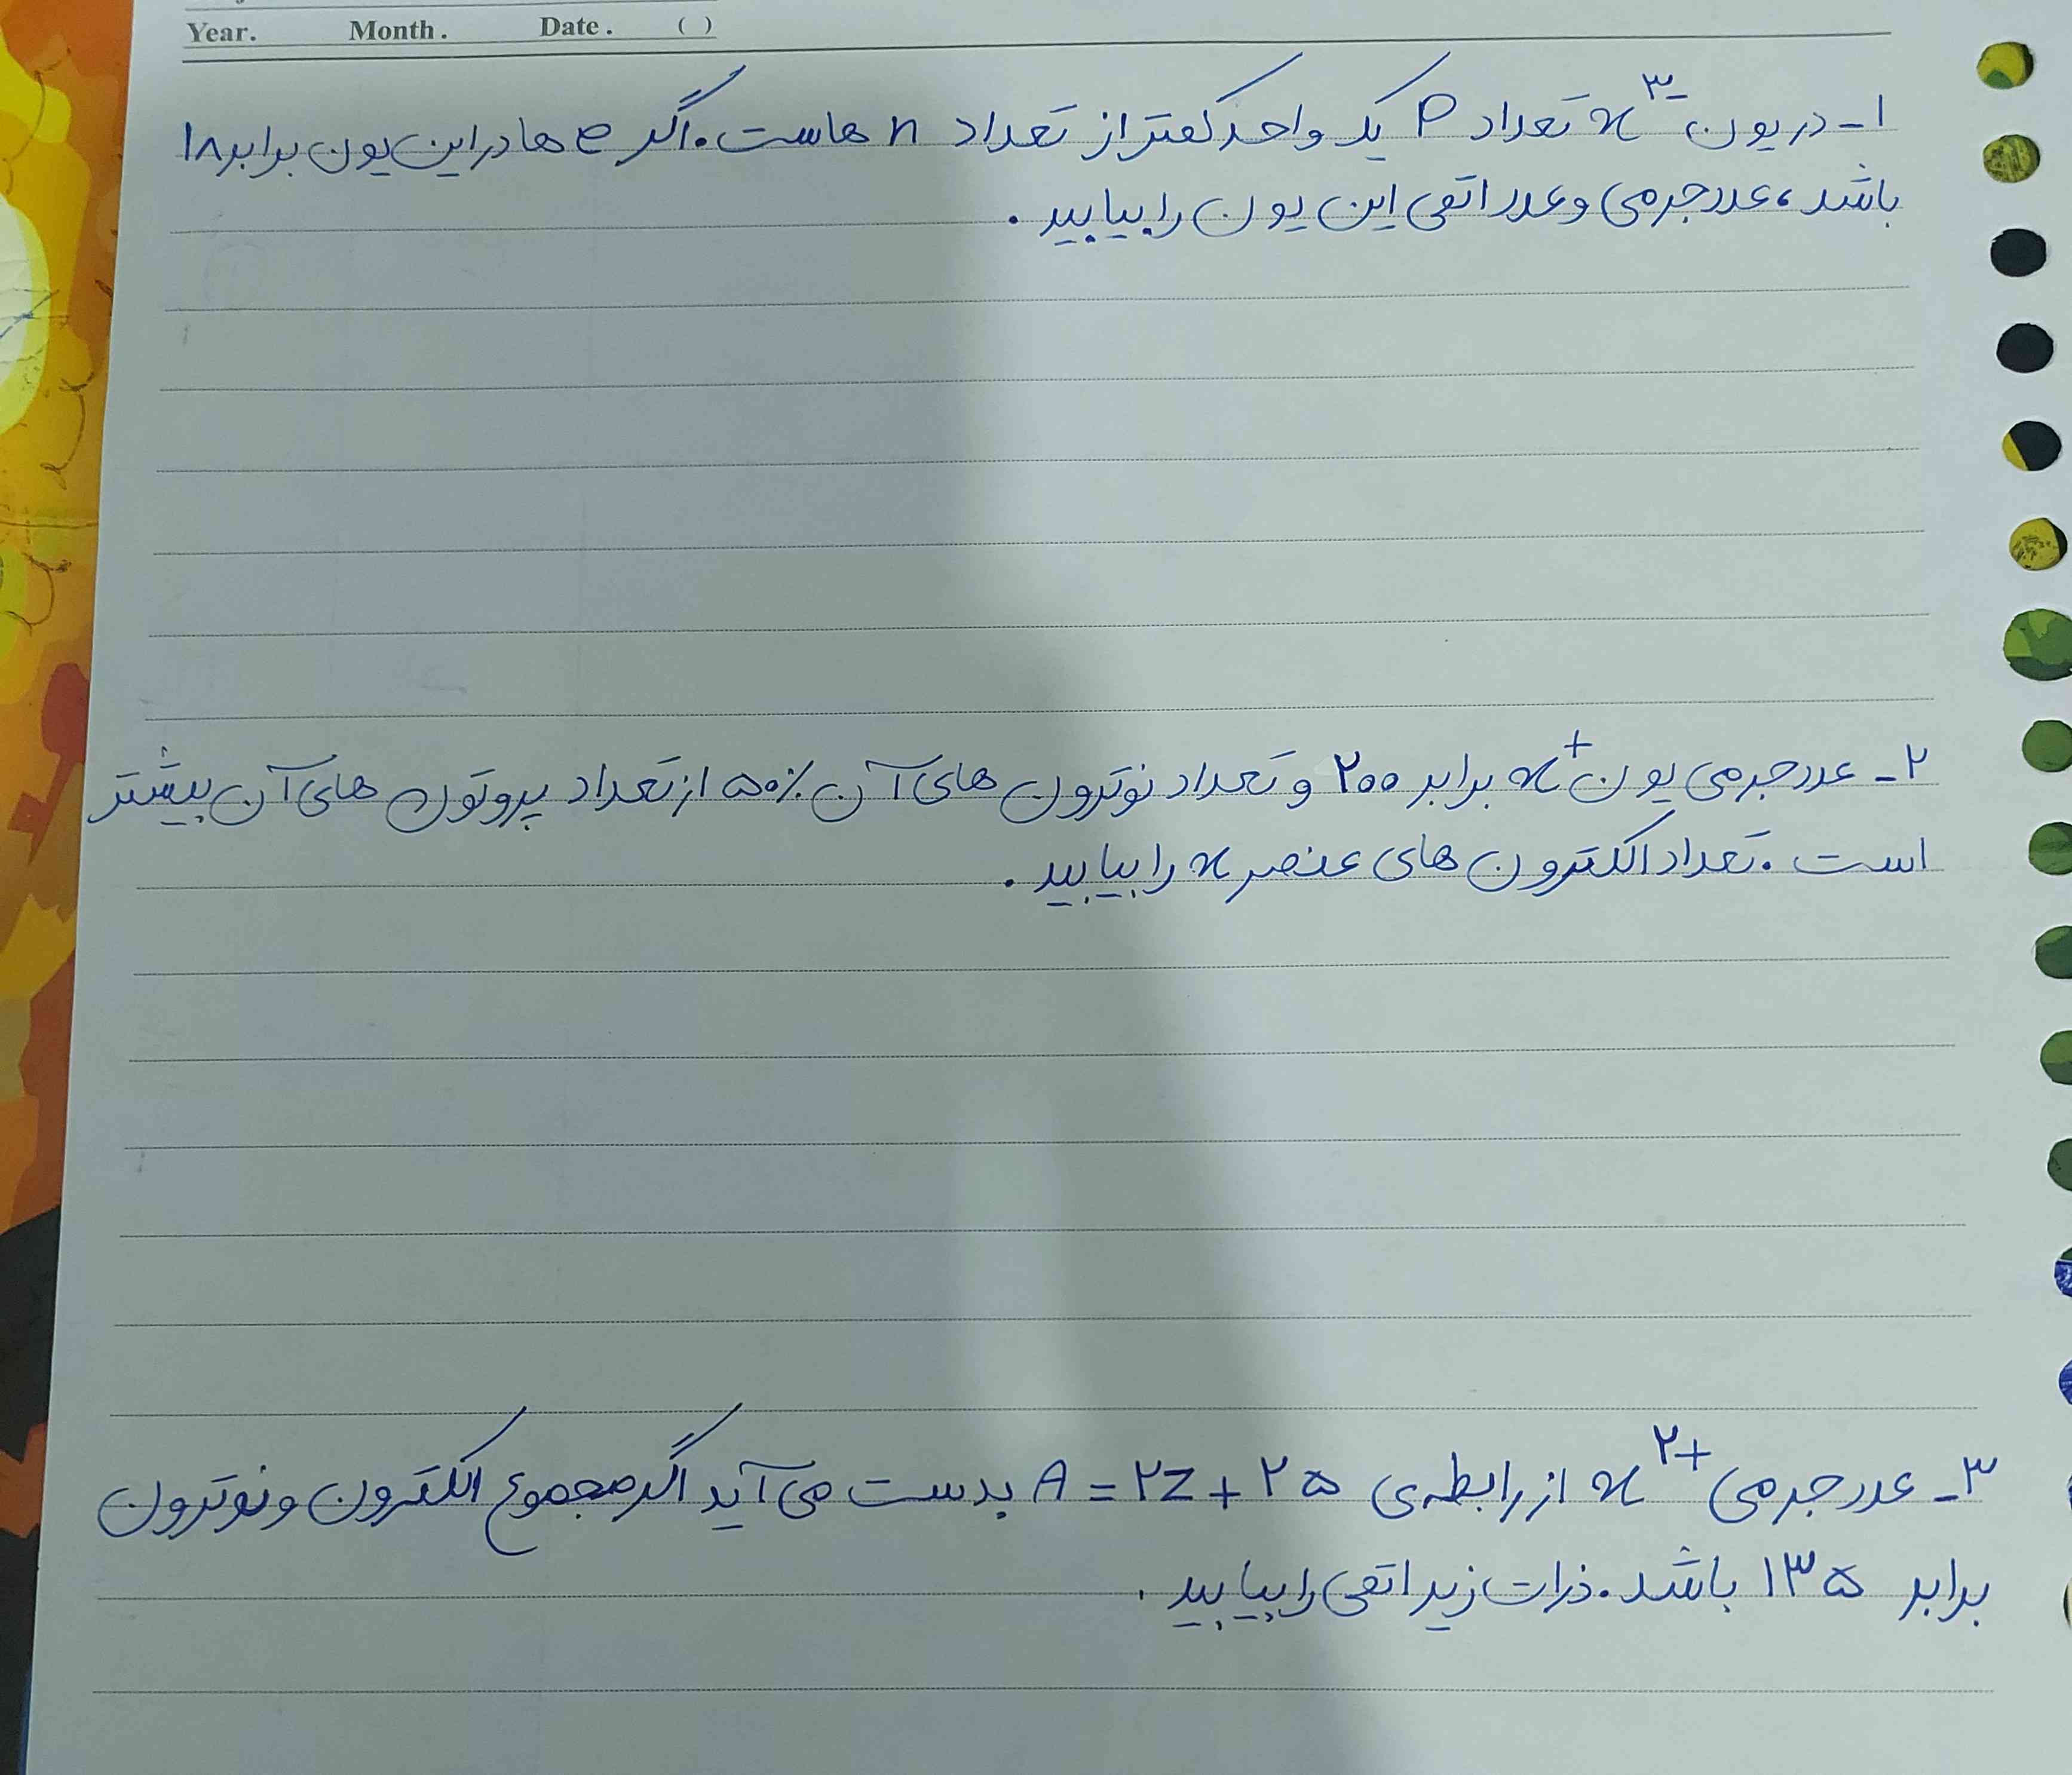 Year. Month. Date. ( )
۱- در یون x³⁻ تعداد p یک واحد کمتر از تعداد n هاست. اگر e ها در این یون برابر ۱۸
باشد، عدد جرمی و عدد اتمی این یون را بیابید.
۲- عدد جرمی یون x⁺ برابر ۲۰۰ و تعداد نوترون های آن ۵۰٪ از تعداد پروتون های آن بیشتر
است. تعداد الکترون های عنصر x را بیابید.
۳- عدد جرمی x²⁺ از رابطه ی A = ۲Z + ۲۵ بدست می آید اگر مجموع الکترون و نوترون
برابر ۱۳۵ باشد. ذرات زیر اتمی را بیابید.